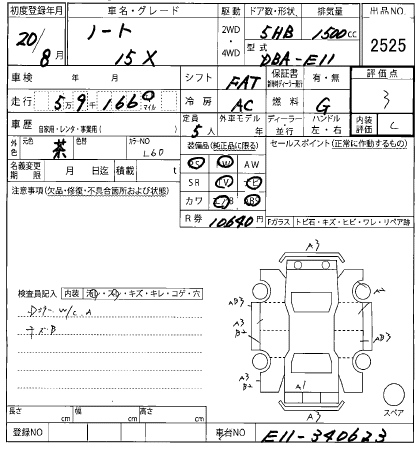 初度登録年月 車名・グレード 駆動 ドア数・形状 排気量 出品NO
20/8月 ノート 15X 2WD・4WD 5HB 1500cc 2525
型式 DBA-E11
車検 年 月 シフト FAT 保証書 有・無 評価点 3
走行 5万9千1660 マイル 冷房 AC 燃料 G
車歴 自家用・レンタ・事業用( ) 定員 5人 外車モデル 年 ディーラー・並行 ハンドル 左・右 内装評価 C
外色 元色 茶 色替 カラーNO L60
装備品(純正品に限る) セールスポイント(正常に動作するもの)
名義変更期限 月 日迄 積載 t
PS PW AW
SR TV ナビ
カワ エアB ABS
注意事項(欠品・修復・不具合箇所および状態)
R券 10640円
Fガラス トビ石・キズ・ヒビ・ワレ・リペア跡
検査員記入 内装 汚レ・スレ・キズ・キレ・コゲ・穴
W/C A
キズB
A3
AB3
A3
B2
A1
A3
スペア
長さ cm 幅 cm 高さ cm
登録NO 車台NO E11-340623